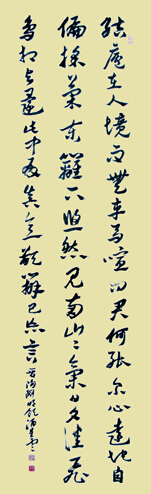 結廬在人境而無車馬喧問君何能尔心遠地自
偏採菊東籬下悠然見南山々氣日夕佳飛
鳥相與還此中有真意欲辯已忘言